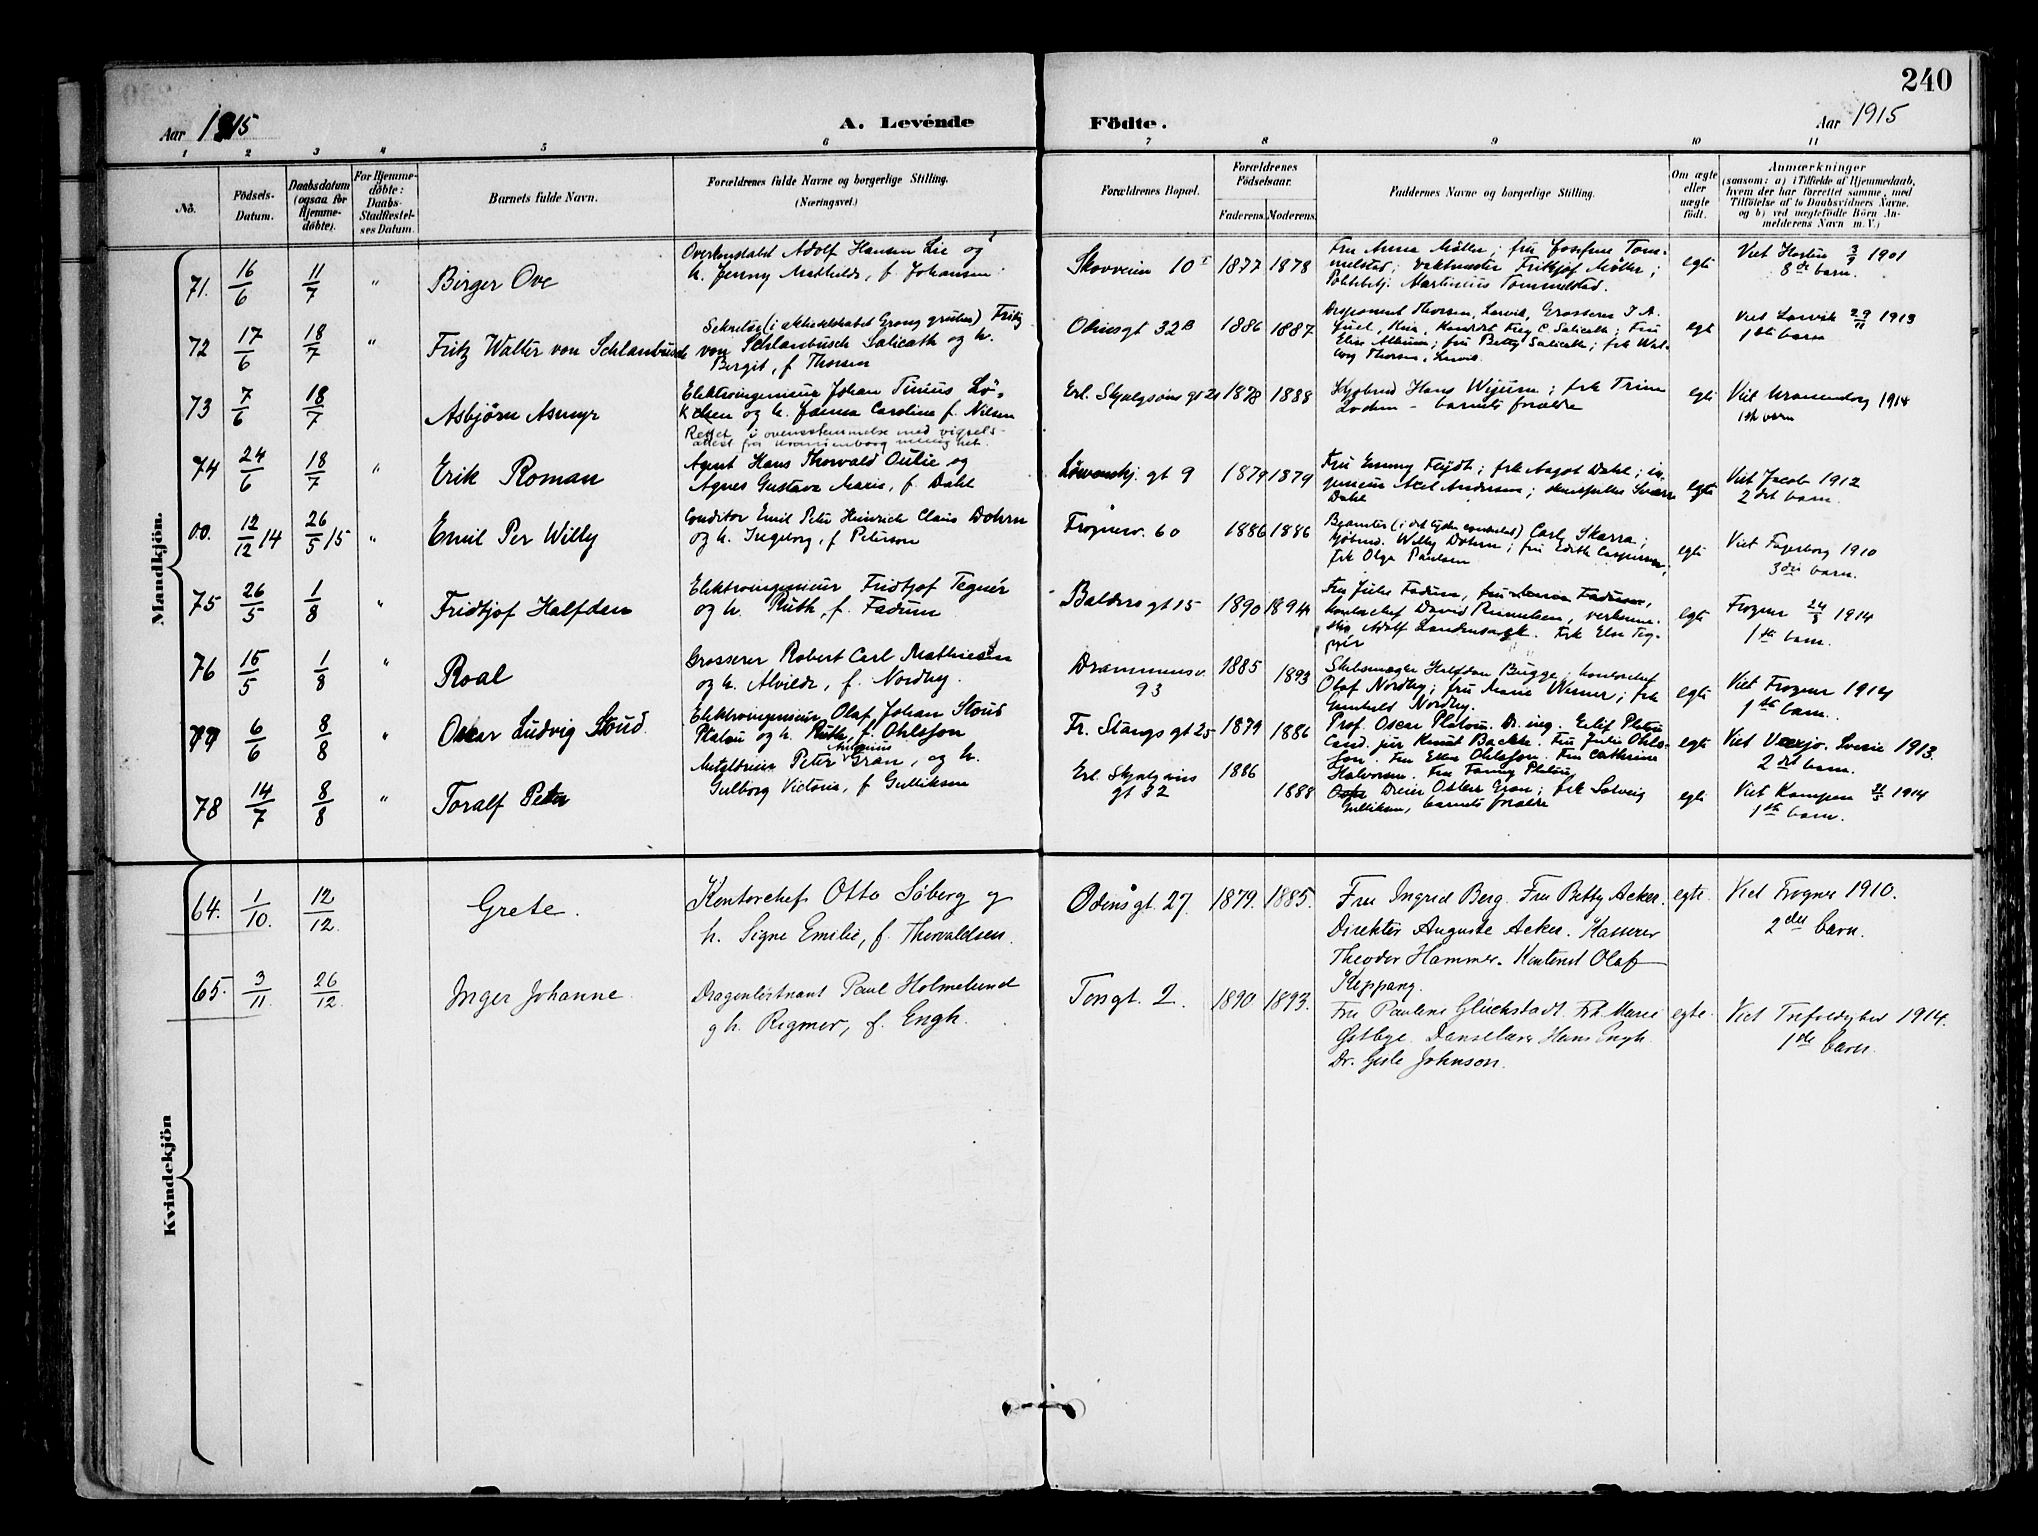 240
Aar 1915
A. Levénde
Födte.
Aar 1915
1 2 3 4 5 6 7 8 9 10 11
No.
Födsels-Datum.
Daabsdatum (ogsaa for Hjemme-døbte).
For Hjemme-døbte: Daabs-Stadfæstel-ses Datum.
Barnets fulde Navn.
Forældrenes fulde Navne og borgerlige Stilling. (Næringsvei.)
Forældrenes Bopæl.
Forældrenes Födselsaar.
Faderens. Moderens.
Faddernes Navne og borgerlige Stilling.
Om ægte eller uægte født.
Anmærkninger
(saasom: a) i Tilfælde af Hjemmedaab, hvem der har forrettet samme, med Tilföielse af to Daabsvidners Navne. og b) ved uegtefödte Börn An-melderens Navn m. V.)
Mandkjön.
71. 16/6 11/7 " Birger Ove
Adolf Hansen Lie og
h. Jenny Mathilde, f. Johansen.
Skovveien 10 1877 1878
Fru Anna Møller; fru Josefine Tom-
melstad; vaktmester Fritjof Møller;
Politibetj. Martinius Tommelstad.
egte
Viet Horten 3/9 1901
8de barn.
72 17/6 18/7 " Fritz Walter von Schlanbusch
Sekretær (i aktieselskabet Grong gruber) Fritz
von Schlanbusch Salicath og h.
Birgit, f Thorsen
Odinsgt 32B 1886 1887
Disponent Thorsen, Larvik, Grosserer I. A.
Elise; fru Betty Salicath; frk Wal-
borg Thorsen, Larvik.
egte
Viet Larvik 29/11 1913
1ste barn
73 7/6 18/7 Asbjörn Asmyr
Elektroingeniør Johan Tinius Lö-
kken og h. Joenna Caroline f. Nilsen
Rettet i overensstemmelse med vigsels-
attest fra Uranienborg menighet.
Erl. Skjalgsøns gt 21 1878 1888
Hans Wigum; frk Trine
Lochen - barnets forældre
egte
Viet Uranienborg 1914
1ste barn
74 24/6 18/7 " Erik Roman
Agent Hans Thorvald Oulie og
Agnes Gustava Marie, f. Dahl
Løvenskj. gt 9 1879 1879
Fru Emmy Flydt; frk Aagot Dahl; in-
geniør Axel Andersen; Sverre
Dahl
egte
Viet Jacob 1912
2det barn.
00. 12/12 14 26/5 15 " Emil Per Willy
Conditor Emil Peter Heinrich Claus Dohrn
og h. Ingeborg, f Peterson
Frognerv. 60 1886 1886
Carl Skarra;
Willy Dohrn; fru Edith Caspersen,
frk Olga Paulsen
egte
Viet Fagerborg 1910
3die barn.
75 26/5 1/8 " Fridtjof Halfdan
Elektroingeniør Fridtjof Tegnér
og h. Ruth, f. Fadum
Baldersgt 15 1890 1894
Fru Julie Fadum, fru Fadum,
kontorchef David Pennelsen,
Adolf. Frk Else Teg-
nér
egte
Frogner 24/3 1914
1ste barn.
76 15/5 1/8 " Roal
Grosserer Robert Carl Mathiesen
og h. Alvilde, f. Nordby.
Drammensv. 93 1885 1893
Halfdan Bugge, kontorchef
Olaf Nordby; fru Marie Werner; frk
Gunhild Nordby.
egte
Viet Frogner 1914
1ste barn.
77 6/6 8/8 " Oskar Ludvig Stoud.
Elektroingeniør Olaf Johan Stoud
Platou og h. Ruth, f. Ohlsson
Fr. Stangs gt 25 1879 1886
Prof. Oscar Platou. Dr. ing. Eilif Platou
Cand. jur Knut Backe. Fru Julie Ohls-
son. Fru Ellen Ohlsson. Fru Cathrine
Halvorsen. Fru Fanny Platou
egte
Viet Vexjo. Sverie 1913.
2det barn.
78 14/7 8/8 " Toralf Peter
Metaldreier Peter Antonius Gran, og h.
Gulborg Victoria, f Gulliksen
Erl. Skjalgsøns gt 32 1886 1888
Dreier Oskar Gran; frk Solveig
Gulliksen, barnets forældre
egte
Viet Kampen 1914
1ste barn.
Kvindekjön
64. 1/10. 12/12. Grete.
Kontorchef Otto Söberg og
h. Signe Emilie, f. Thorvaldsen.
Odins gt. 27. 1879. 1885.
Fru Ingrid Berg. Fru Betty Acker.
Direktör Auguste Acker. Kasserer
Theodor Hammer. Kontorist Olaf
Kleppang.
egte.
Viet Frogner 1910.
2det barn.
65. 3/11. 26/12. Inger Johanne.
Dragonløitnant Paul Holmelund
og h. Rigmor, f. Engh.
Torsgt. 2. 1890 1893.
Fru Pauline Glückstadt. Frk Marie
Østbye. Danselærer Hans Engh.
Dr. Gisle Johnson.
egte.
Viet Trefoldighet 1914.
1ste barn.